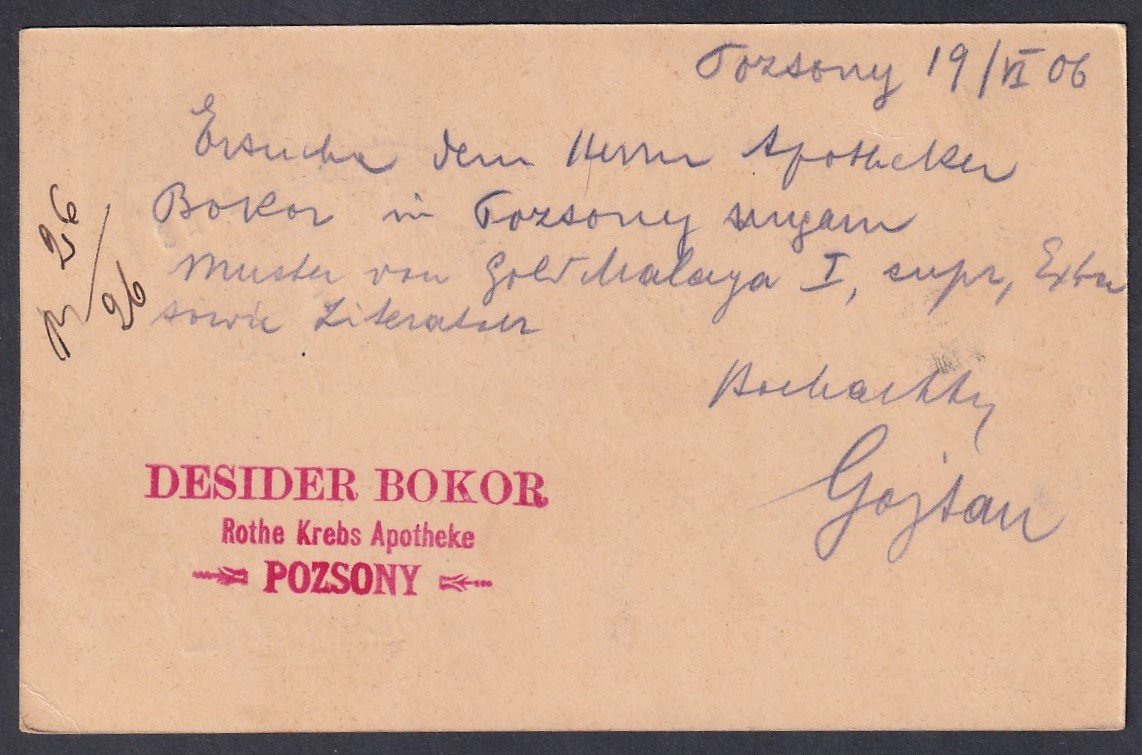 Pozsony 19/VI 06
Ersuche dem Herrn Apotheker
Bokor in Pozsony ungarn
Muster von Gold Malaga I, supr, Extra
sowie Literatur
Hochachtg
Gojtan
26
26
DESIDER BOKOR
Rothe Krebs Apotheke
POZSONY